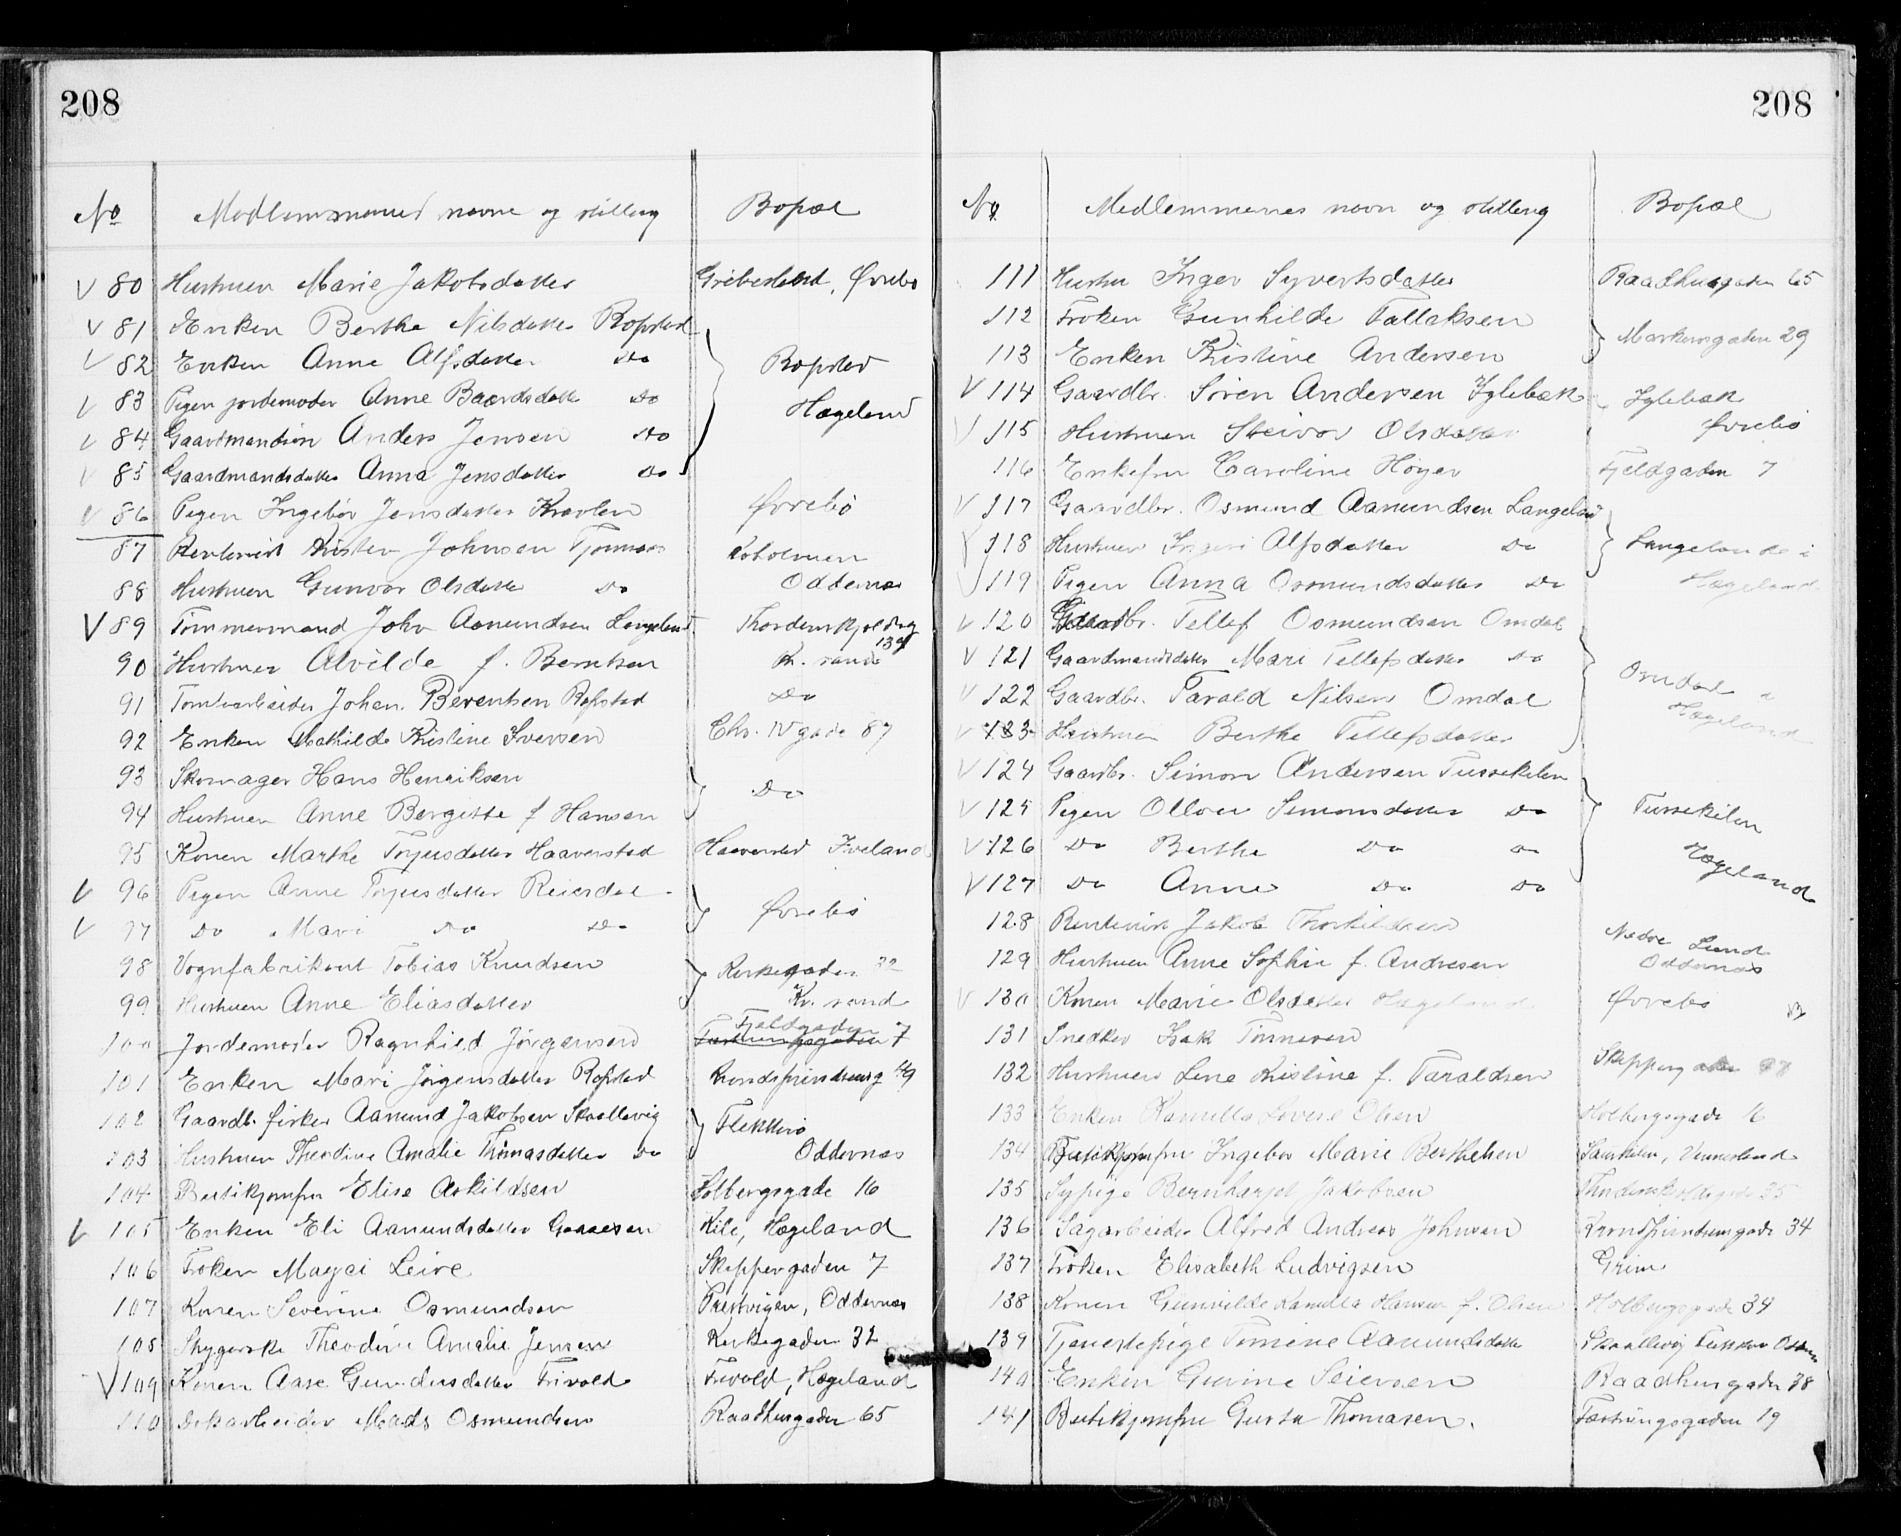 208
No Medlemmernes navne og stilling Bopæl
V 80 Hustruen Marie Jakobsdatter Grebesland, Øvrebø
V 81 Enken Berthe Nilsdatter Ropstad
V 82 Enken Anne Alfsdatter Do Ropstad
V 83 Pigen jordemoder Anne Baardsdatter Do Hægeland
V 84 Gaardmandssøn Anders Jensen Do
V 85 Gaardmandsdatter Anna Jensdatter Do
V 86 Pigen Ingebør Jensdatter Øvrebø
87 Rentenist Johnsen Kobolmen
88 Hustruen Gunvor Olsdatter Do Oddernæs
V 89 Tømmermand John Aanundsen Langeland Thordenskjoldsg 134
90 Hustruen Alvilde f. Berntsen Kr. sand
91 Tomtearbeider Johan Berentsen Ropstad Do
92 Enken Mathilde Kristine Iversen Chr. IV gade 87
93 Skomager Hans Henriksen
94 Hustruen Anne Bergitte f Hansen Do
95 Konen Marthe Torjusdatter Haaverstad Haaverstad Iveland
V 96 Pigen Anne Torjusdatter Reiersdal
V 97 Do Mari Do Do Øvrebø
98 Vognfabrikant Tobias Knudsen Kirkegaden 32
99 Hustruen Anne Eliasdatter Kr. sand
100 Jordemoder Ragnhild Jørgensen Fjeldgaden 7
101 Enken Mari Jørgensdatter Ropstad Kronprindsensg 49
102 Gaardb. fisker Aanund Jakobsen Skaallevig Flekkerø
103 Hustruen Theodine Amalie Thomasdatter Do Oddernæs
104 Butikjomfru Elise Askildsen Holbergsgade 16
V 105 Enken Eli Aanundsdatter Gaaseson Kile, Hægeland
106 Frøken Maggi Leire Skippergaden 7
107 Konen Severine Osmundsen Prestvigen, Oddernæs
108 Sygerske Theodine Amalie Jensen Kirkegaden 32
V 109 Konen Aase Gundersdatter Frivold Frivold, Hægeland
110 Mads Osmundsen Raadhusgaden 65
208
No Medlemmernes navn og stilling Bopæl
111 Hustru Inger Syvertsdatter Raadhusgaden 65
112 Frøken Gunhilde Tallaksen
113 Enken Kristine Andersen Markensgaden 29
V 114 Gaardbr. Søren Andersen Iglebæk Iglebæk
V 115 Hustruen Steivor Olsdatter Øvrebø
116 Enkefru Caroline Høyer Fjeldgaden 7
V 117 Gaardbr. Osmund Aanundsen Langeland
V 118 Hustruen Ingeri Alfsdatter Do Langeland i
V 119 Pigen Anna Osmundsdatter Do Hægeland
V 120 Gaardbr. Tellef Osmundsen Omdal
V 121 Gaardmandsdatter Mari Tellefsdatter Do
V 122 Gaardbr. Tarald Nilsen Omdal Omdal i
V 123 Hustruen Berthe Tellefsdatter Hægeland
V 124 Gaardbr. Simon Andersen Tussekilen
V 125 Pigen Ollou Simonsdatter Do Tussekilen
V 126 Do Berthe Do Do Hægeland
V 127 Do Anne Do Do
128 Rentenist Jakob Thorkildsen Nedre Lund
129 Hustruen Anne Sophie f. Andresen Oddernæs
V 130 Konen Marie Olsdatter Hægeland Øvrebø
131 Snedker Isak Tønnesen
132 Hustruen Line Kristine f. Taraldsen Skipperg
133 Enken Kamilla Lovise Olsen Holbergsgade 16
134 Butikjomfru Ingebor Marie Berthelsen Vennesland
135 Sypige Jakobsen Thordenskjoldsgade 35
136 Sagarbeider Alfred Andreas Johnsen Kronprindsensgade 34
137 Frøken Elisabeth Ludvigsen Grim
138 Konen Gunvilde Kamilla Hansen f. Olsen Holbergsgade 34
139 Tjenestepige Tomine Aanundsdatter Skaallevig Flekkerø Oddernæs
140 Enken Gurine Seiersen Raadhusgaden 38
141 Butikjomfru Gusta Thomasen. Fæstningsgaden 19